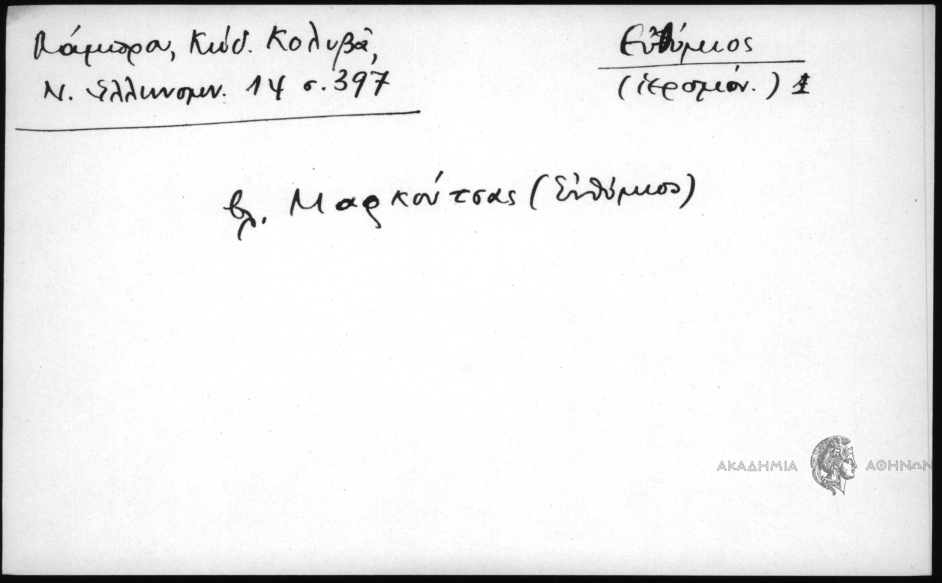 Λάμπρου, Κώδ. Κολυβᾶ,
Ν. Ἑλληνομν. 14 σ. 397
Εὐθύμιος
(ἱερομόν.) 1
βλ. Μαρκούτσας (Εὐθύμιος)
ΑΚΑΔΗΜΙΑ ΑΘΗΝΩΝ